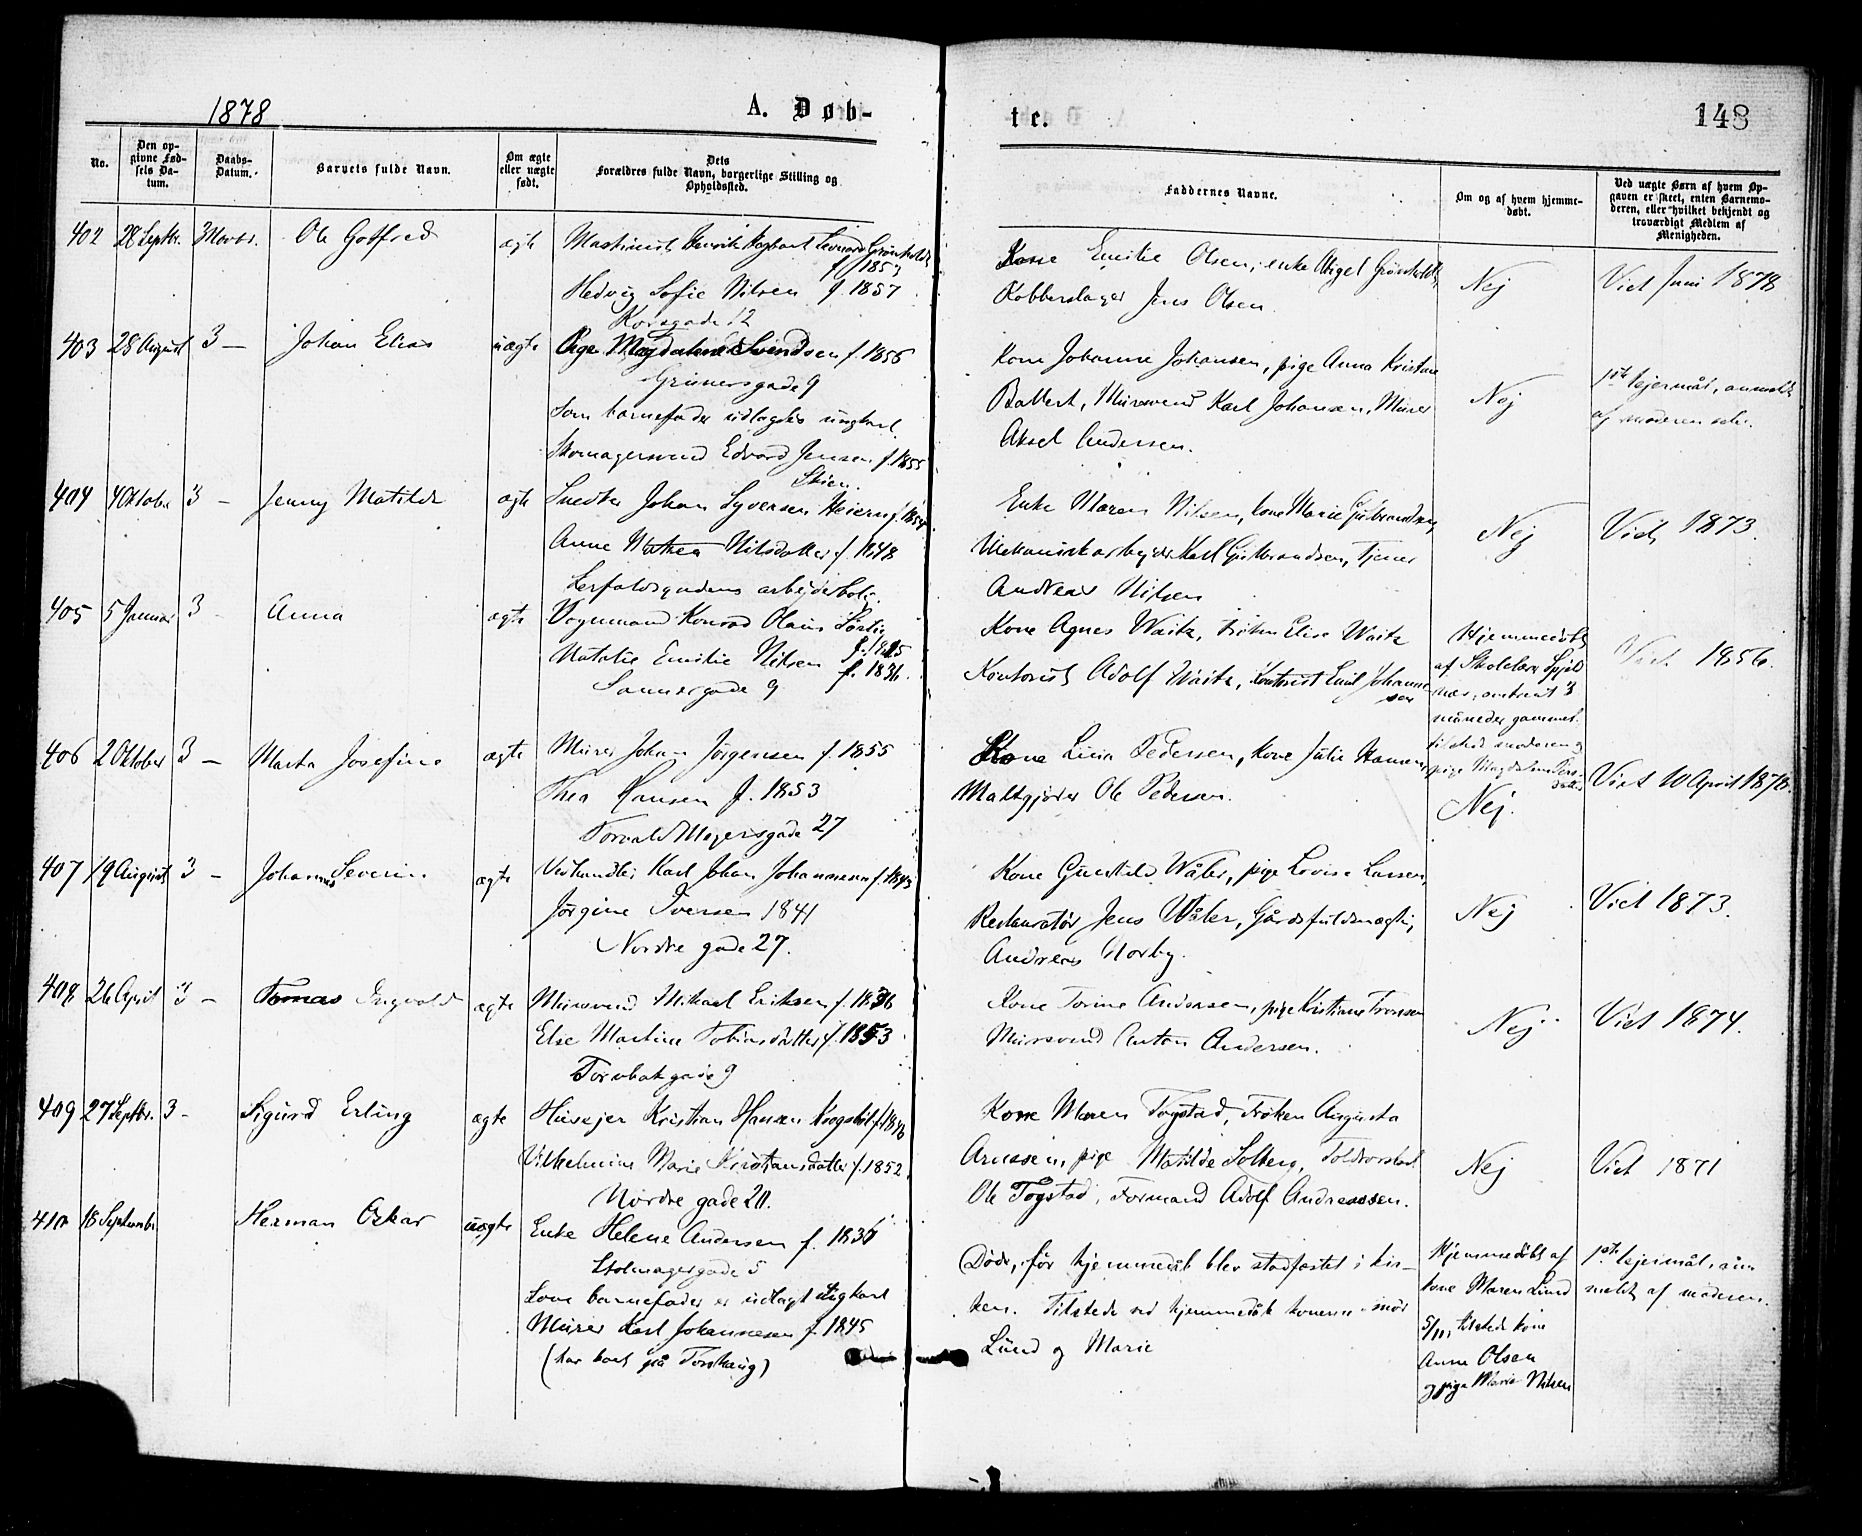 1878
A. Døb-
te.
148
No.
Den op-
givne Fød-
sels Da-
tum.
Daabs-
Datum.
Barnets fulde Navn.
Om ægte
eller uægte
født.
Dets
Forældres fulde Navn, borgerlige Stilling og
Opholdssted.
Faddernes Navne.
Om og af hvem hjemme-
døbt.
Ved uægte Børn af hvem Op-
gaven er skeet, enten Barnemo-
deren, eller hvilket bekjendt og
troværdigt Medlem af
Menigheden.
402 28 Septbr. 3 Novbr. Ole Gotfred ægte Maskinist Henrik Leonard Grønholdt
f. 1853
Hedvig Sofie Nilsen f. 1857
Korsgade 12
Kone Emilie Olsen, enke Grønholdt,
Kobberslager Jens Olsen
Nej
Viet Juni 1878
403 28 August 3 — Johan Elias uægte Pige Magdalena Svendsen f. 1856
Grünersgade 9
Som barnefader udlagdes ungkarl
Skomagersvend Edvard Jensen f. 1855
Skien.
Kone Johanne Johansen, pige Anna Kristine
Battert, Mursvend Karl Johansen, Murer
Aksel Andersen.
Nej
1ste lejermål, anmeldt
af moderen selv.
404 4 Oktober 3 — Jenny Matilde ægte Snedker Johan Syversen Heiern f. 1854
Anne Mathea Nilsdatter f. 1848
arbejderbolig.
Enke Maren Nilsen, kone Marie Gulbrandsen,
Mekaniskarbejder Karl Gulbrandsen, Tjener
Andreas Nilsen
Nej
Viet 1873.
405 5 Januar 3 - Anna ægte Vognmand Konrad Olaus Sørlie
f. 1825
Natalie Emilie Nilsen f. 1836.
Sannergade 9
Kone Agnes Waitz, frøken Elise Waitz
Kontorist Adolf Waitz, Kontorist Emil Johanne
sen
Hjemmedøbt
af Skolelærer
omtrent 3
måneder gammel.
tilstede moderen og
pige Magdalena Pers-
datter
Viet 1856.
406 2 Oktober 3 — Marta Josefine ægte Murer Johan Jørgensen f. 1855
Thea Hansen f. 1853
Torvald Meyersgade 27
Kone Lina Pedersen, kone Julie Hansen
Maltgjører Ole Pedersen.
Nej.
Viet 10 April 1878.
407 19 August 3 — Johannes Severin ægte Vedhandler Karl Johan Johannesen f. 1843
Jørgine Iversen 1841
Nordre gade 27.
Kone Gunhild Wåler, pige Lovise Larsen,
Restauratør Jens Wåler, Gårdsfuldmægtig
Andreas Norby.
Nej
Viet 1873.
408 26 April 3 — Tomas Ingvald ægte Mursvend Mikael Eriksen f. 1836
Else Martine Tobiasdatter f. 1853
Tornbakgade 9
Kone Torine Andersen, pige Kristiane Tronsen
Mursvend Anton Andersen.
Nej
Viet 1874.
409 27 Septbr. 3 - Sigurd Erling ægte Husejer Kristian Hansen f. 1846
Vilhelmine Marie Kristiansdatter f. 1852
Nordre gade 20.
Kone Maren Togstad, Frøken Augusta
Arnesen, pige Matilde Solberg,
Ole Togstad, Formand Adolf Andreassen.
Nej
Viet 1871
410 18 September Herman Oskar uægte Enke Helene Andersen f. 1836
Stolmagergade 5
Som barnefader er udlagt Ungkarl
Murer Karl Johannesen f. 1845
(har boet på Torshaug)
Døde, før hjemmedåb blev stadfæstet i kir-
ken. Tilstede ved hjemmedåb konerne
Lund og Marie
Hjemmedøbt af
kone Maren Lund
5/11, tilstede kone
Anne Olsen
og pige Marie Nilsen
1ste lejermål, an
meldt af moderen.